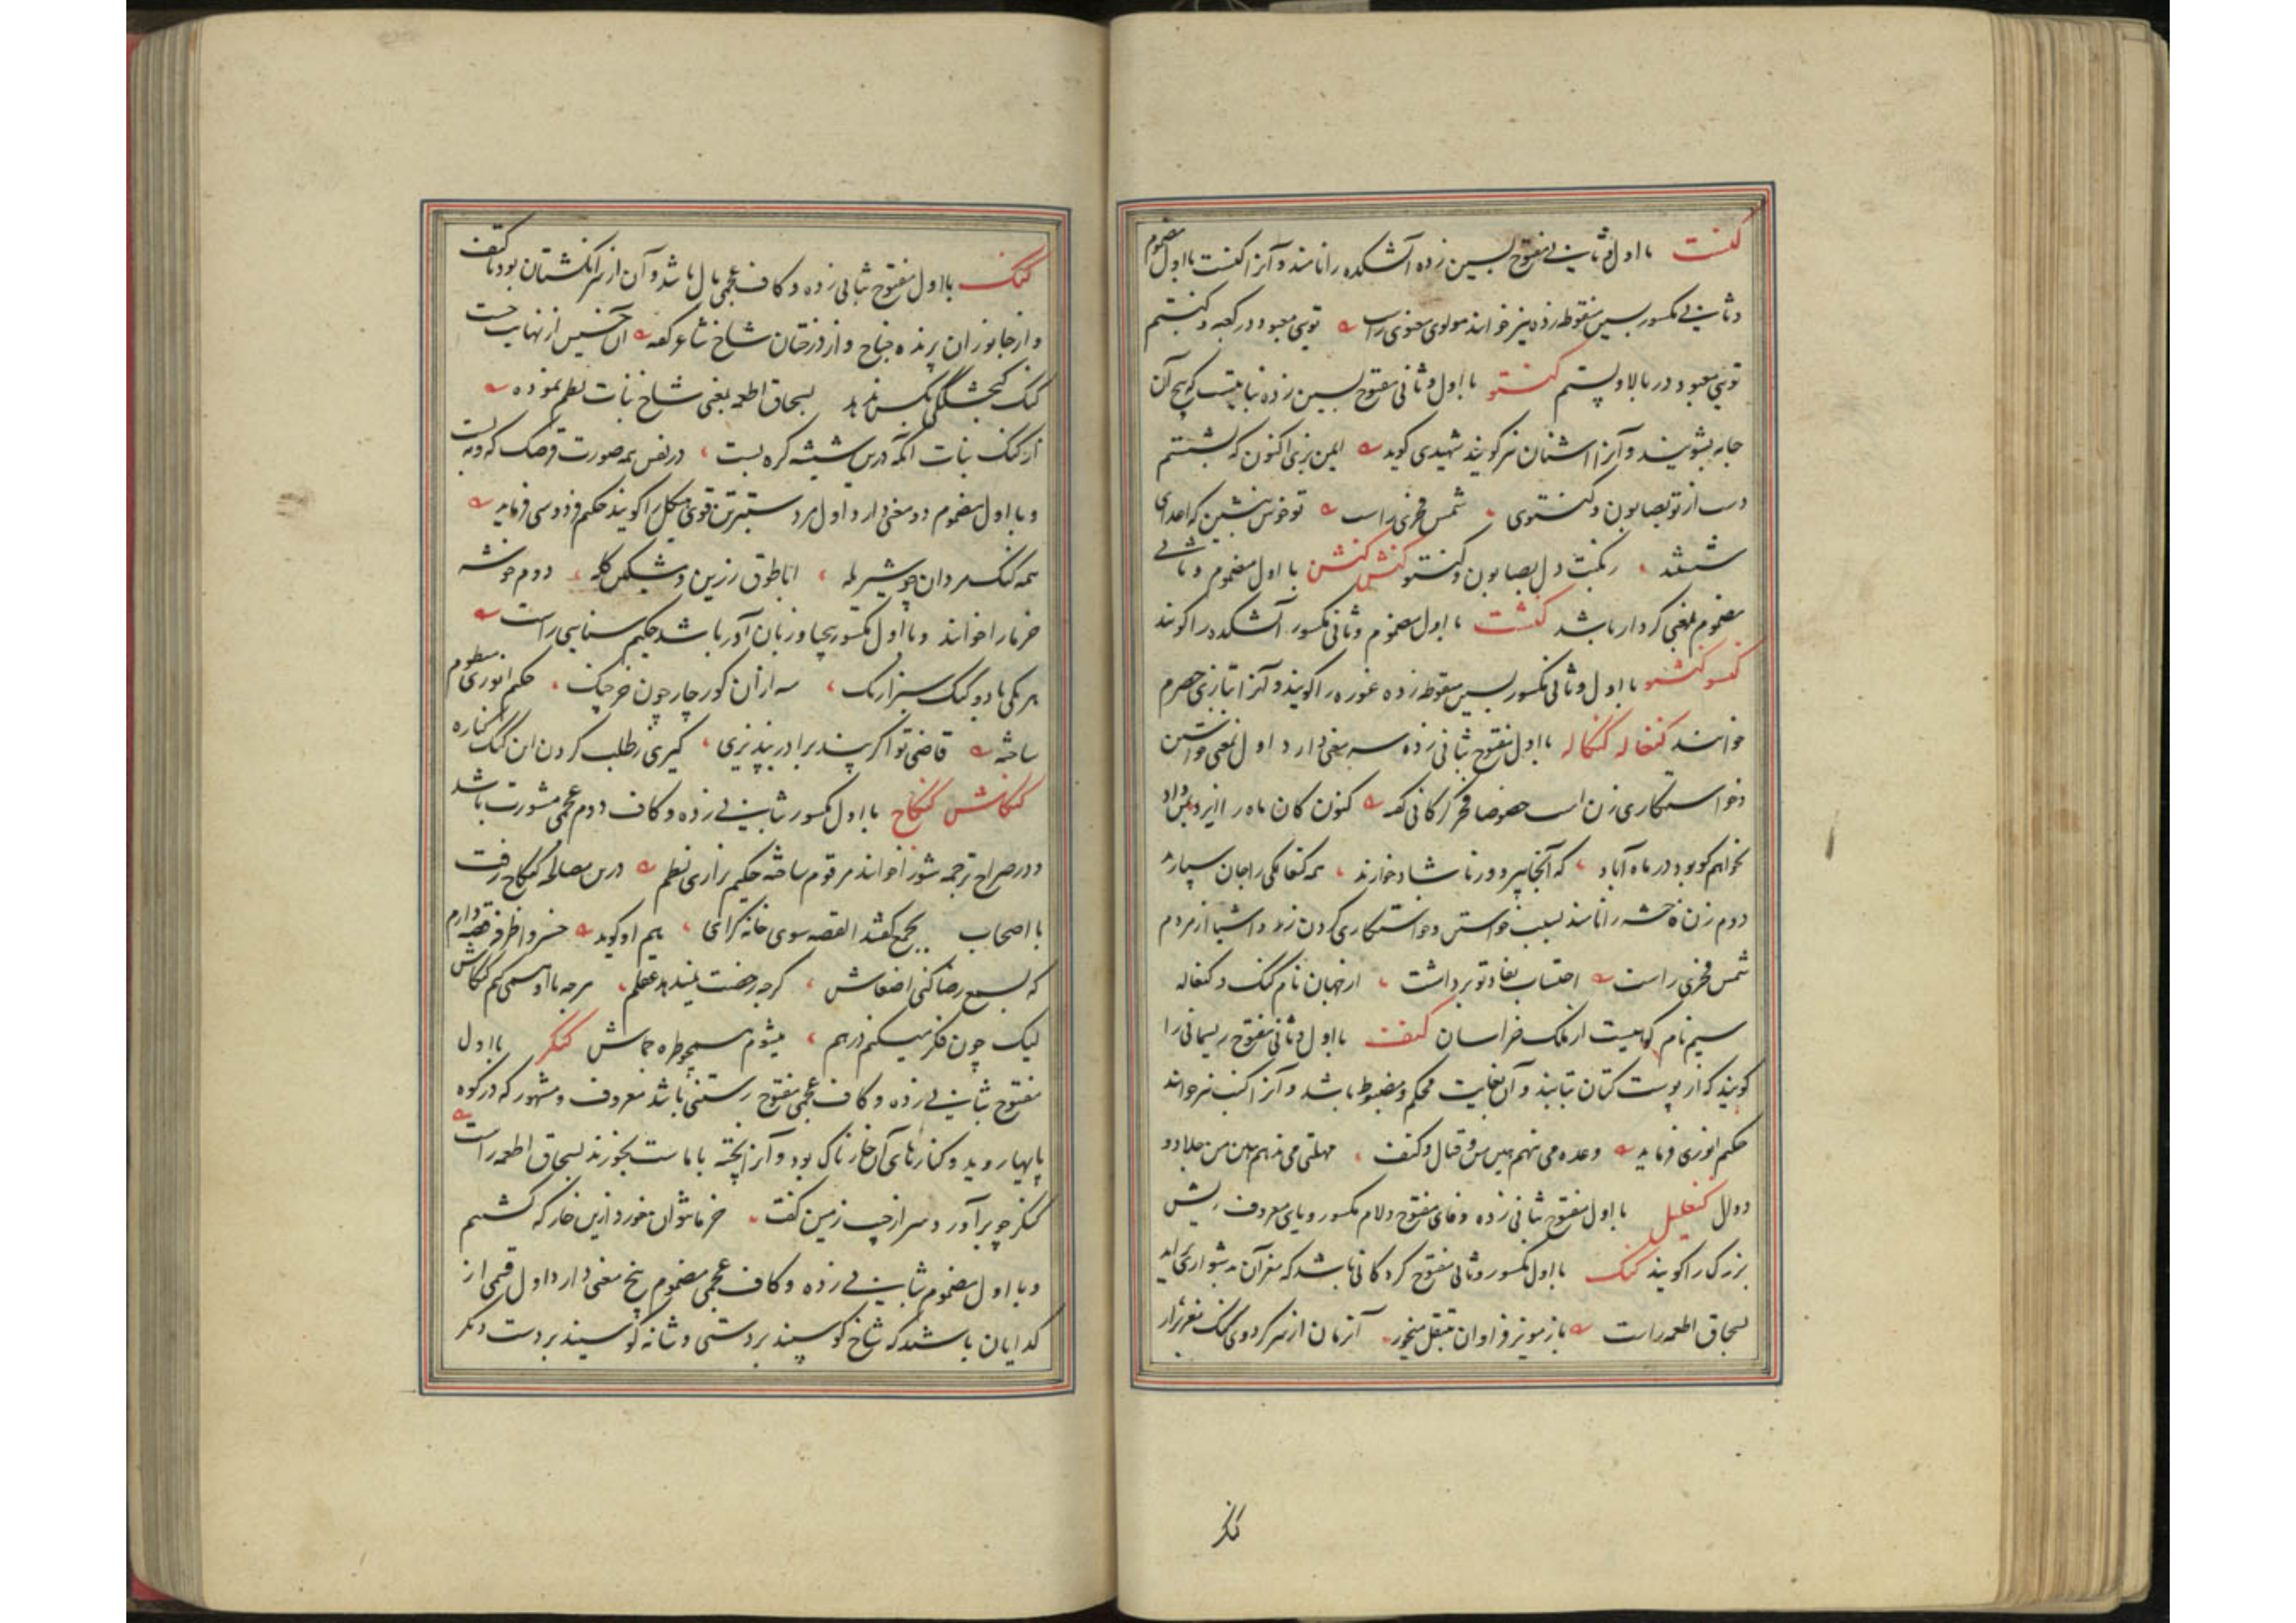 کنست با اول و ثانی مفتوح بسین زده آتشکده را نامند و آنرا کنست با اول مضموم
و ثانی مکسور بسین منقوطه زده نیز خوانند مولوی معنوی راست توی معبود در کعبه و کنشتم
توی معبود در بالا و پستم کنستو با اول و ثانی مفتوح بسین زده نباتیست که بیخ آن
جامه بشویند و آنرا اشنان نیز گویند شهیدی گوید ایمن بزی اکنون که بشستم
دست از تو بصابون و کنستوی شمس فخری راست تو خوش بنشین که اعدای
شستند ز کینت دل بصابون و کنستو کنش کنشن با اول مضموم و ثانی
مضموم بمعنی کردار باشد کنشت با اول مضموم و ثانی مکسور آتشکده را گویند
کنسو کنشو با اول و ثانی مکسور بسین منقوطه زده غوره را گویند و آنرا بتازی حصرم
خوانند کنغاله کنگاله با اول مفتوح بثانی زده سه معنی دارد اول بمعنی خواستن
و خواستگاری زن است خصوصا فخر گرگانی گفته کنون کان ماه را ایزد بمن داد
نخواهم کو بود در ماه آباد که آنجا پیر و برنا شاد خوارند همه کنغالگی را جان سپارند
دوم زن فاحشه را نامند بسبب خواستن و خواستگاری کردن زر و اشیا از مردم
شمس فخری راست احتساب نفاذ تو برداشت از جهان نام کنگ و کنغاله
سیم نام کوهیست از ملک خراسان کنف با اول و ثانی مفتوح ریسمانی را
گویند که از پوست کتان تابند و آن بغایت محکم و مضبوط باشد و آنرا کنب نیز خوانند
حکیم انوری فرماید وعده می نهم قتال و کنف مهلتی می ندهم جلاد و
دوال کنفلیل با اول مفتوح بثانی زده و فای مفتوح و لام مکسور و یای معروف ریش
بزرگ را گویند کنک با اول مکسور و ثانی مفتوح گردکانی باشد که مغز آن بدشواری برآید
بسحاق اطعمه راست باز مویز فراوان بتنقل میخور آنزمان از سر گردوی کنک مغز برآر
کنگ
کنگ با اول مفتوح بثانی زده و کاف عجمی بال باشد و آن از سر انگشتان بود تا کتف
و از جانوران پرنده جناح و از درختان شاخ شاعر گفته آن خسیس از نهایت خست
کنگ گنجشگی بکس ندهد بسحاق اطعمه بمعنی شاخ نبات نظم نموده
از کنگ نبات آنکه درین شیشه گره بست در نفس همه صورت قرصک که و به بست
و با اول مضموم دو معنی دارد اول مرد ستبرتن قوی هیکل را گویند حکیم فردوسی فرماید
همه کنگ مردان چو شیر یله ابا طوق زرین و مشکین کله دوم خوشه
خرما را خوانند و با اول مکسور بیحیا و زبان آور باشد حکیم سنایی راست
هر یکی با دو کنگ سبزارنگ سه از آن کور چار چون خرچنگ حکیم انوری منظوم
ساخته قاضی تو اگر پند برادر بپذیری گیری ز طلب کردن این کنگ کناره
کنگاش کنگاج با اول مکسور بثانی زده و کاف دوم عجمی مشورت باشد
و در صراح ترجمه شور اخوانند مرقوم ساخته حکیم نزاری نظم درین مصالحه کنگاج رفت
با اصحاب بجمع گفتند القصه سوی خانه گرای هم او گوید خسروا ظرفه قصه دارم
که بسمع رضا کنی اضغاش گرچه رخصت نمیدهد عقلم هرچه با او همی کنم کنگاش
لیک چون فکر میکنم در هم میشوم خماش کنگر با اول
مفتوح بثانی زده و کاف عجمی مفتوح رستنی باشد معروف و مشهور که در کوه
پایها روید و کنارهای آن خارناک بود و آنرا پخته با ماست بخورند بسحاق اطعمه راست
کنگر چو برآورد سر از جیب زمین گفت خرما نتوان خورد ازین خار که کشتیم
و با اول مضموم بثانی زده و کاف عجمی مضموم پنج معنی دارد اول قسمی از
گدایان باشند که شاخ گوسپند بر دستی و شانه گوسپند بر دست دیگر